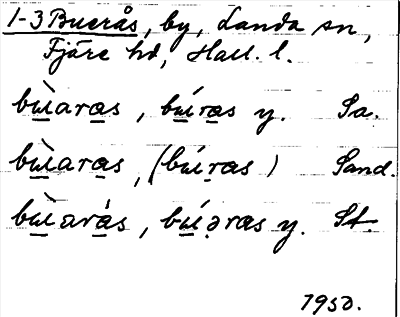 1-3 Buerås, by, Landa sn,
Fjäre hd, Hall. l.
bù̲ara̲s, bú̲ra̲s y. Sa.
bù̲ara̲s, (bú̲ṛas) Sand.
bù̲arà̲s, bú̲ə̣ras y. St.
1950.